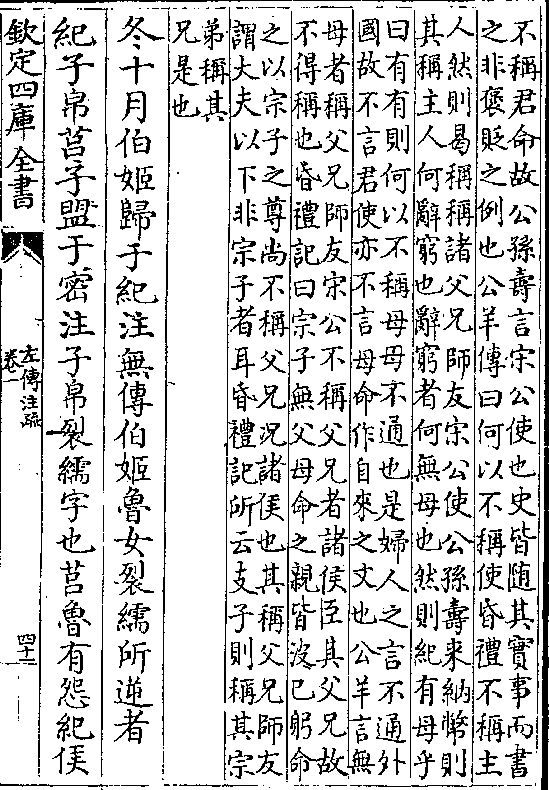 不稱君命故公孫壽言宋公使也史皆随其實事而書
之非褒貶之例也公羊傳曰何以不稱使昏禮不稱主
人然則曷稱稱諸父兄師友宋公使公孫壽来納幣則
其稱主人何辭窮也辭窮者何無母也然則紀有母乎
曰有有則何以不稱母母不通也是婦人之言不通外
國故不言君使亦不言母命作自來之文也公羊言無
母者稱父兄師友宋公不稱父兄者諸侯臣其父兄故
不得稱也昏禮記曰宗子無父母命之親皆没已躬命
之以宗子之尊尚不稱父兄況諸侯也其稱父兄師友
謂大夫以下非宗子者耳昏禮記所云支子則稱其宗
弟稱其
兄是也
冬十月伯姬歸于紀注無傳伯姬魯女裂繻所逆者
紀子帛莒子盟于密注子帛裂繻字也莒魯有怨紀侯
欽定四庫全書
左傳注疏
卷一
四十二